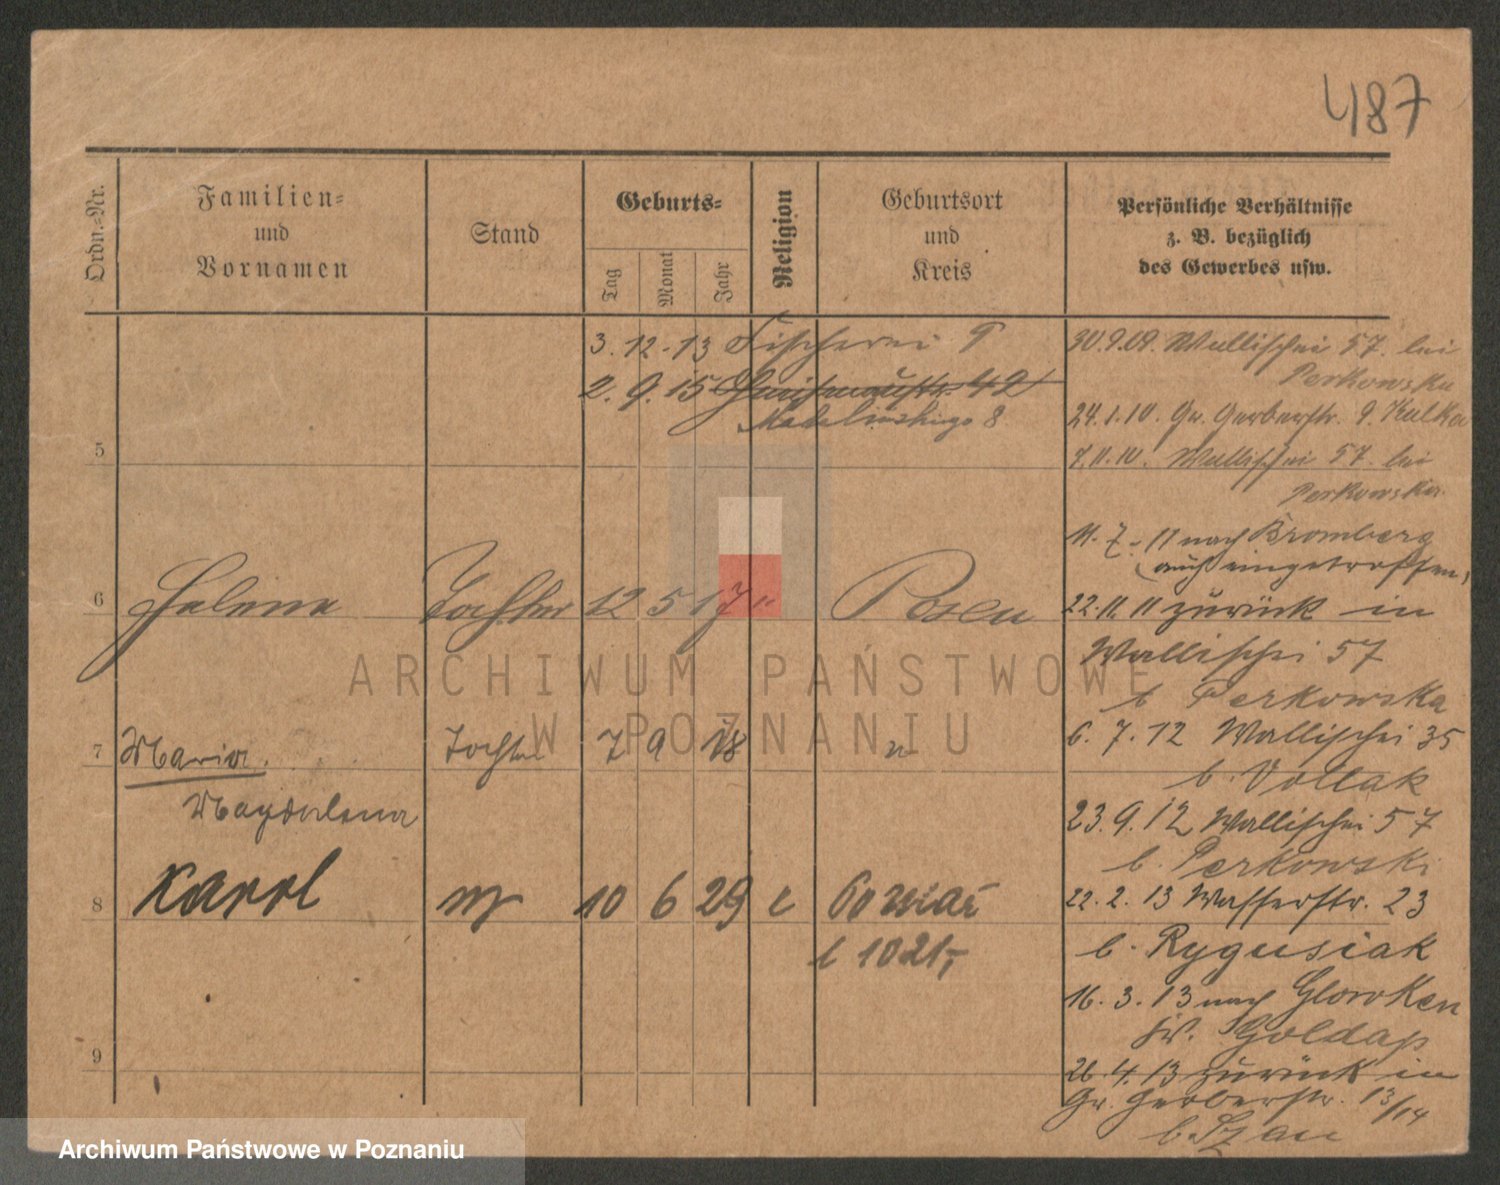 487
Ordn.-Nr.
Familien-
und
Vornamen
Stand
Geburts-
Tag
Monat
Jahr
Religion
Geburtsort
und
Kreis
Persönliche Verhältnisse
z. B. bezüglich
des Gewerbes usw.
3. 12. 13 Fischerei 9
2. 9. 15 42
Madalinskiego 8
5
6 Helene Tochter 12 5 17 " Posen
7 Maria Tochter 7 9 18 "
Magdalena
8 Karol m 10 6 29 c Poznań
t 1021,-
9
30.9.09. Wallischei 57. bei
Perkowska
24.1.10. Gr. Gerberstr. 9. Kulka
7.11.10. Wallischei 57. bei
Perkowska
11. 7. 11 nach Bromberg
(auch eingetroffen)
22.11.11 zurück in
Wallischei 57
b. Perkowska
6. 7. 12 Wallischei 35
b. Vollak
23. 9. 12 Wallischei 57
b. Perkowski
22. 2. 13 Wasserstr. 23
b. Rygusiak
16. 3. 13 nach Glowken
Kr. Goldap
26. 4. 13 zurück in
Gr. Gerberstr. 13/14
b.
ARCHIWUM PAŃSTWOWE
W POZNANIU
Archiwum Państwowe w Poznaniu